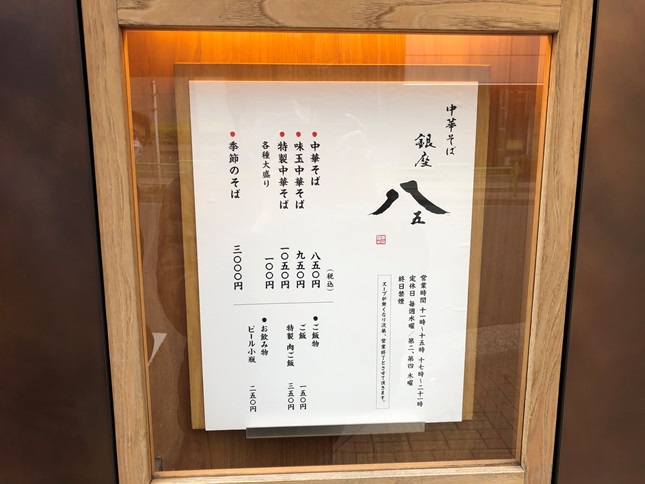 中華そば
銀座
八五
営業時間 十一時〜十五時 十七時〜二十一時
定休日 毎週水曜 / 第二、第四
終日禁煙
スープが無くなり次第、営業終了とさせて頂きます。
(税込)
● 中華そば 八五〇円
● 味玉中華そば 九五〇円
● 特製中華そば 一〇五〇円
各種大盛り 一〇〇円
● 季節のそば 三〇〇〇円
● ご飯物
ご飯 一五〇円
特製 肉ご飯 三五〇円
● お飲み物
ビール小瓶 二五〇円